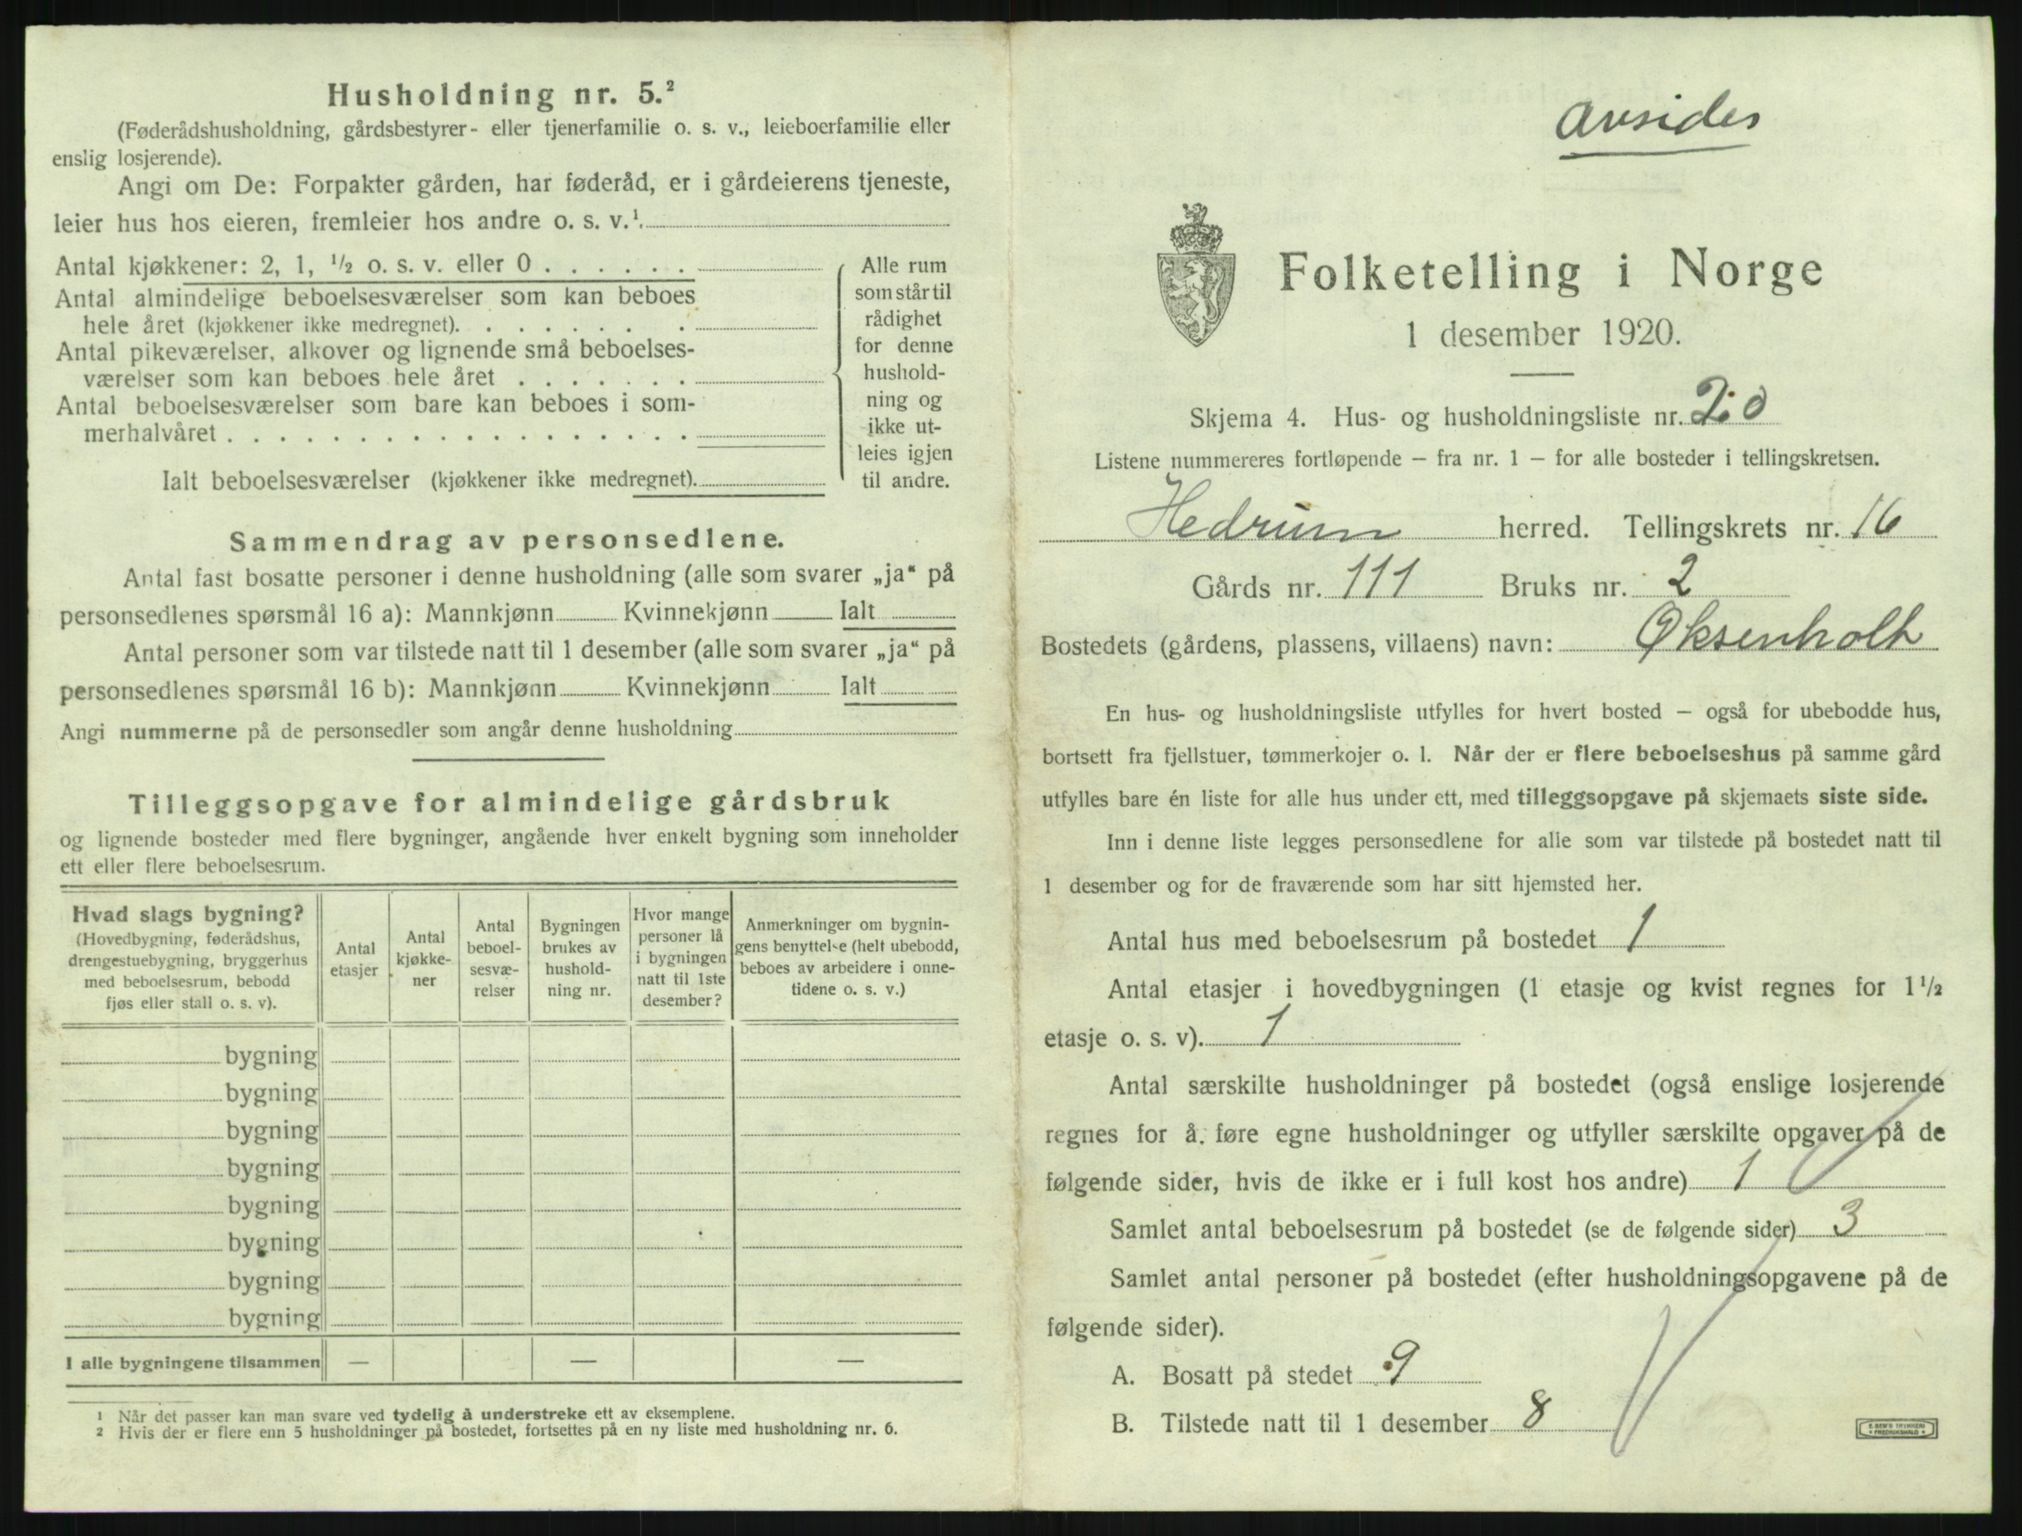 Husholdning nr. 5.²
(Føderådshusholdning, gårdsbestyrer- eller tjenerfamilie o. s. v., leieboerfamilie eller
enslig losjerende).
Angi om De: Forpakter gården, har føderåd, er i gårdeierens tjeneste,
leier hus hos eieren, fremleier hos andre o. s. v.¹.
Antal kjøkkener: 2, 1, ½ o. s. v. eller 0 . . . . . .
Antal almindelige beboelsesværelser som kan beboes
hele året (kjøkkener ikke medregnet). . . . . . . .
Antal pikeværelser, alkover og lignende små beboelses-
værelser som kan beboes hele året . . . . . . .
Antal beboelsesværelser som bare kan beboes i som-
merhalvåret . . . . . . . . . . . . . . . . . .
Ialt beboelsesværelser (kjøkkener ikke medregnet).
Alle rum
som står til
rådighet
for denne
hushold-
ning og
ikke ut-
leies igjen
til andre.
Sammendrag av personsedlene.
Antal fast bosatte personer i denne husholdning (alle som svarer „ja“ på
personsedlenes spørsmål 16 a): Mannkjønn Kvinnekjønn Ialt
Antal personer som var tilstede natt til 1 desember (alle som svarer „ja“ på
personsedlenes spørsmål 16 b): Mannkjønn Kvinnekjønn Ialt
Angi nummerne på de personsedler som angår denne husholdning
Tilleggsopgave for almindelige gårdsbruk
og lignende bosteder med flere bygninger, angående hver enkelt bygning som inneholder
ett eller flere beboelsesrum.
Hvad slags bygning?
(Hovedbygning, føderådshus,
drengestuebygning, bryggerhus
med beboelsesrum, bebodd
fjøs eller stall o. s. v).
Antal
etasjer
Antal
kjøkke-
ner
Antal
beboel-
sesvæ-
relser
Bygningen
brukes av
hushold-
ning nr.
Hvor mange
personer lå
i bygningen
natt til 1ste
desember?
Anmerkninger om bygnin-
gens benyttelse (helt ubebodd,
beboes av arbeidere i onne-
tidene o. s. v.)
bygning
bygning
bygning
bygning
bygning
bygning
bygning
bygning
I alle bygningene tilsammen — — —
¹ Når det passer kan man svare ved tydelig å understreke ett av eksemplene.
² Hvis der er flere enn 5 husholdninger på bostedet, fortsettes på en ny liste med husholdning nr. 6.
avsides
Folketelling i Norge
1 desember 1920.
Skjema 4. Hus- og husholdningsliste nr. 20
Listene nummereres fortløpende – fra nr. 1 – for alle bosteder i tellingskretsen.
Hedrum herred. Tellingskrets nr. 16
Gårds nr. 111 Bruks nr. 2
Bostedets (gårdens, plassens, villaens) navn: Øksenholt
En hus- og husholdningsliste utfylles for hvert bosted – også for ubebodde hus,
bortsett fra fjellstuer, tømmerkojer o. l. Når der er flere beboelseshus på samme gård
utfylles bare én liste for alle hus under ett, med tilleggsopgave på skjemaets siste side.
Inn i denne liste legges personsedlene for alle som var tilstede på bostedet natt til
1 desember og for de fraværende som har sitt hjemsted her.
Antal hus med beboelsesrum på bostedet 1
Antal etasjer i hovedbygningen (1 etasje og kvist regnes for 1½
etasje o. s. v). 1
Antal særskilte husholdninger på bostedet (også enslige losjerende
regnes for å føre egne husholdninger og utfyller særskilte opgaver på de
følgende sider, hvis de ikke er i full kost hos andre) 1
Samlet antal beboelsesrum på bostedet (se de følgende sider) 3
Samlet antal personer på bostedet (efter husholdningsopgavene på de
følgende sider).
A. Bosatt på stedet 9
B. Tilstede natt til 1 desember 8